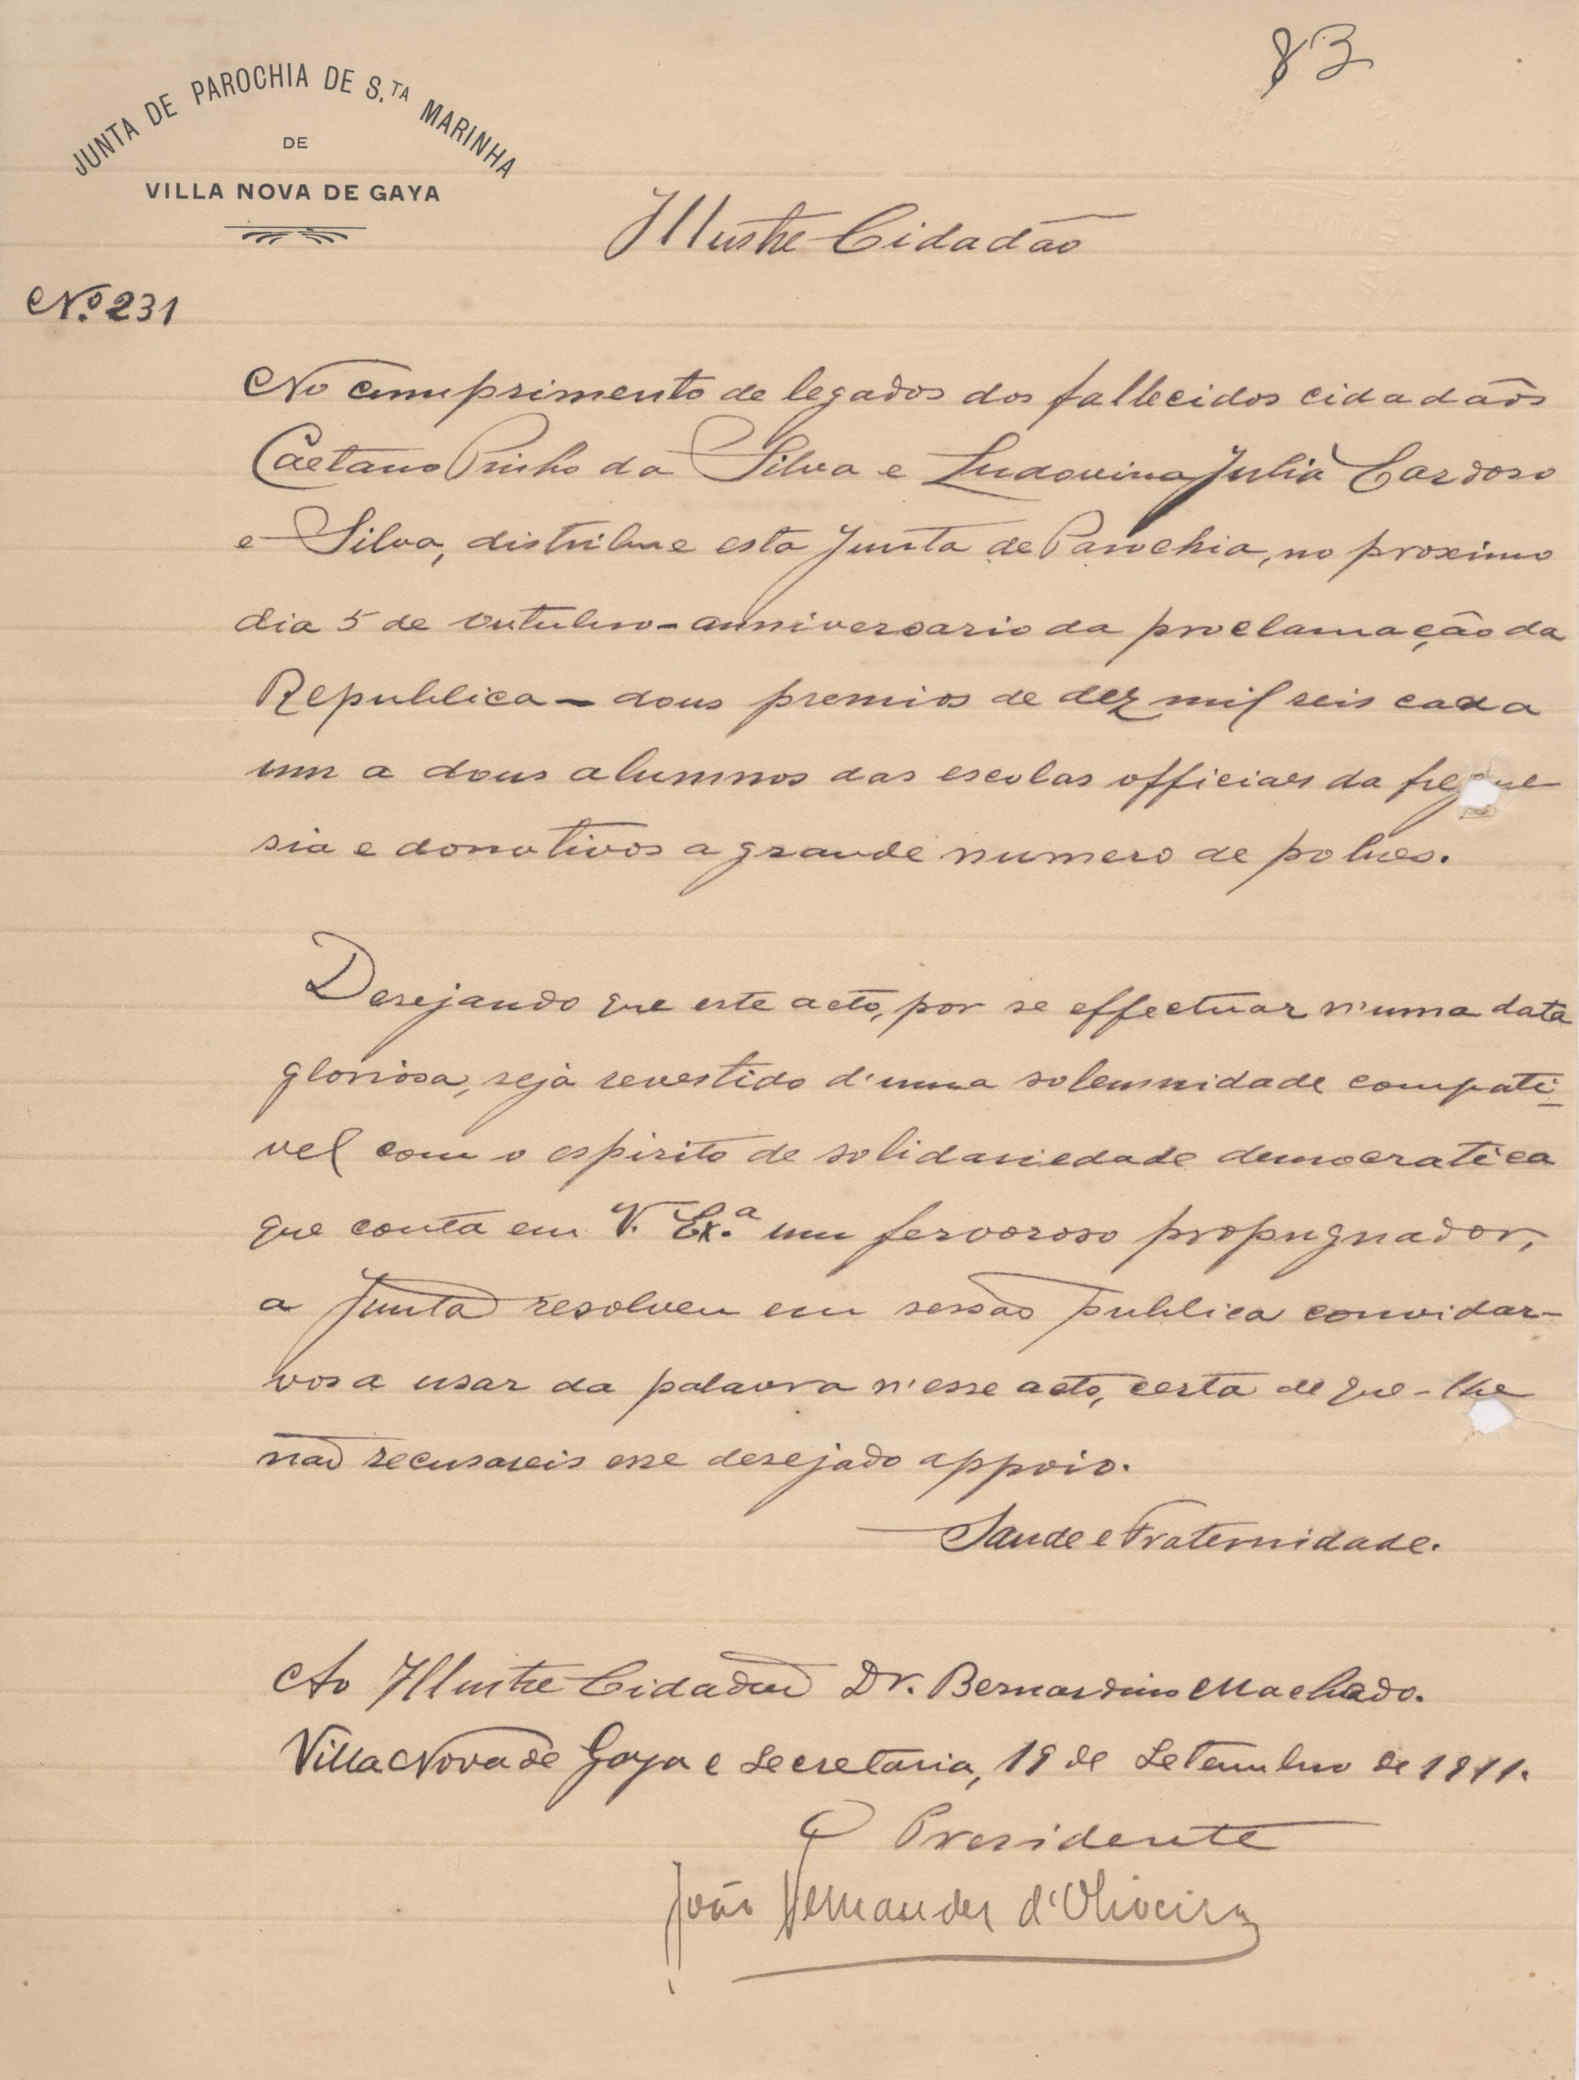 83
JUNTA DE PAROCHIA DE S.TA MARINHA
DE
VILLA NOVA DE GAYA
Illustre Cidadão
No. 231
No cumprimento de legados dos fallecidos cidadãos
Caetano Pinho da Silva e Ludovina Julia Cardoso
e Silva, distribue esta Junta de Parochia, no proximo
dia 5 de outubro - anniversario da proclamação da
Republica - dous premios de dez mil reis cada
um a dous alumnos das escolas officiaes da fregue
sia e donativos a grande numero de pobres.
Desejando que este acto, por se effectuar n'uma data
gloriosa, seja revestido d'uma solemnidade compati-
vel com o espirito de solidariedade democratica
que conta em V. Ex.ª um fervoroso propugnador,
a Junta resolveu em sessão publica convidar-
vos a usar da palavra n'esse acto, certa de que - lhe
não recusareis esse desejado appoio.
Saude e Fraternidade.
Ao Illustre Cidadão Dr. Bernardino Machado.
Villa Nova de Gaya e Secretaria, 19 de Setembro de 1911.
O Presidente
João Fernandes d'Oliveira